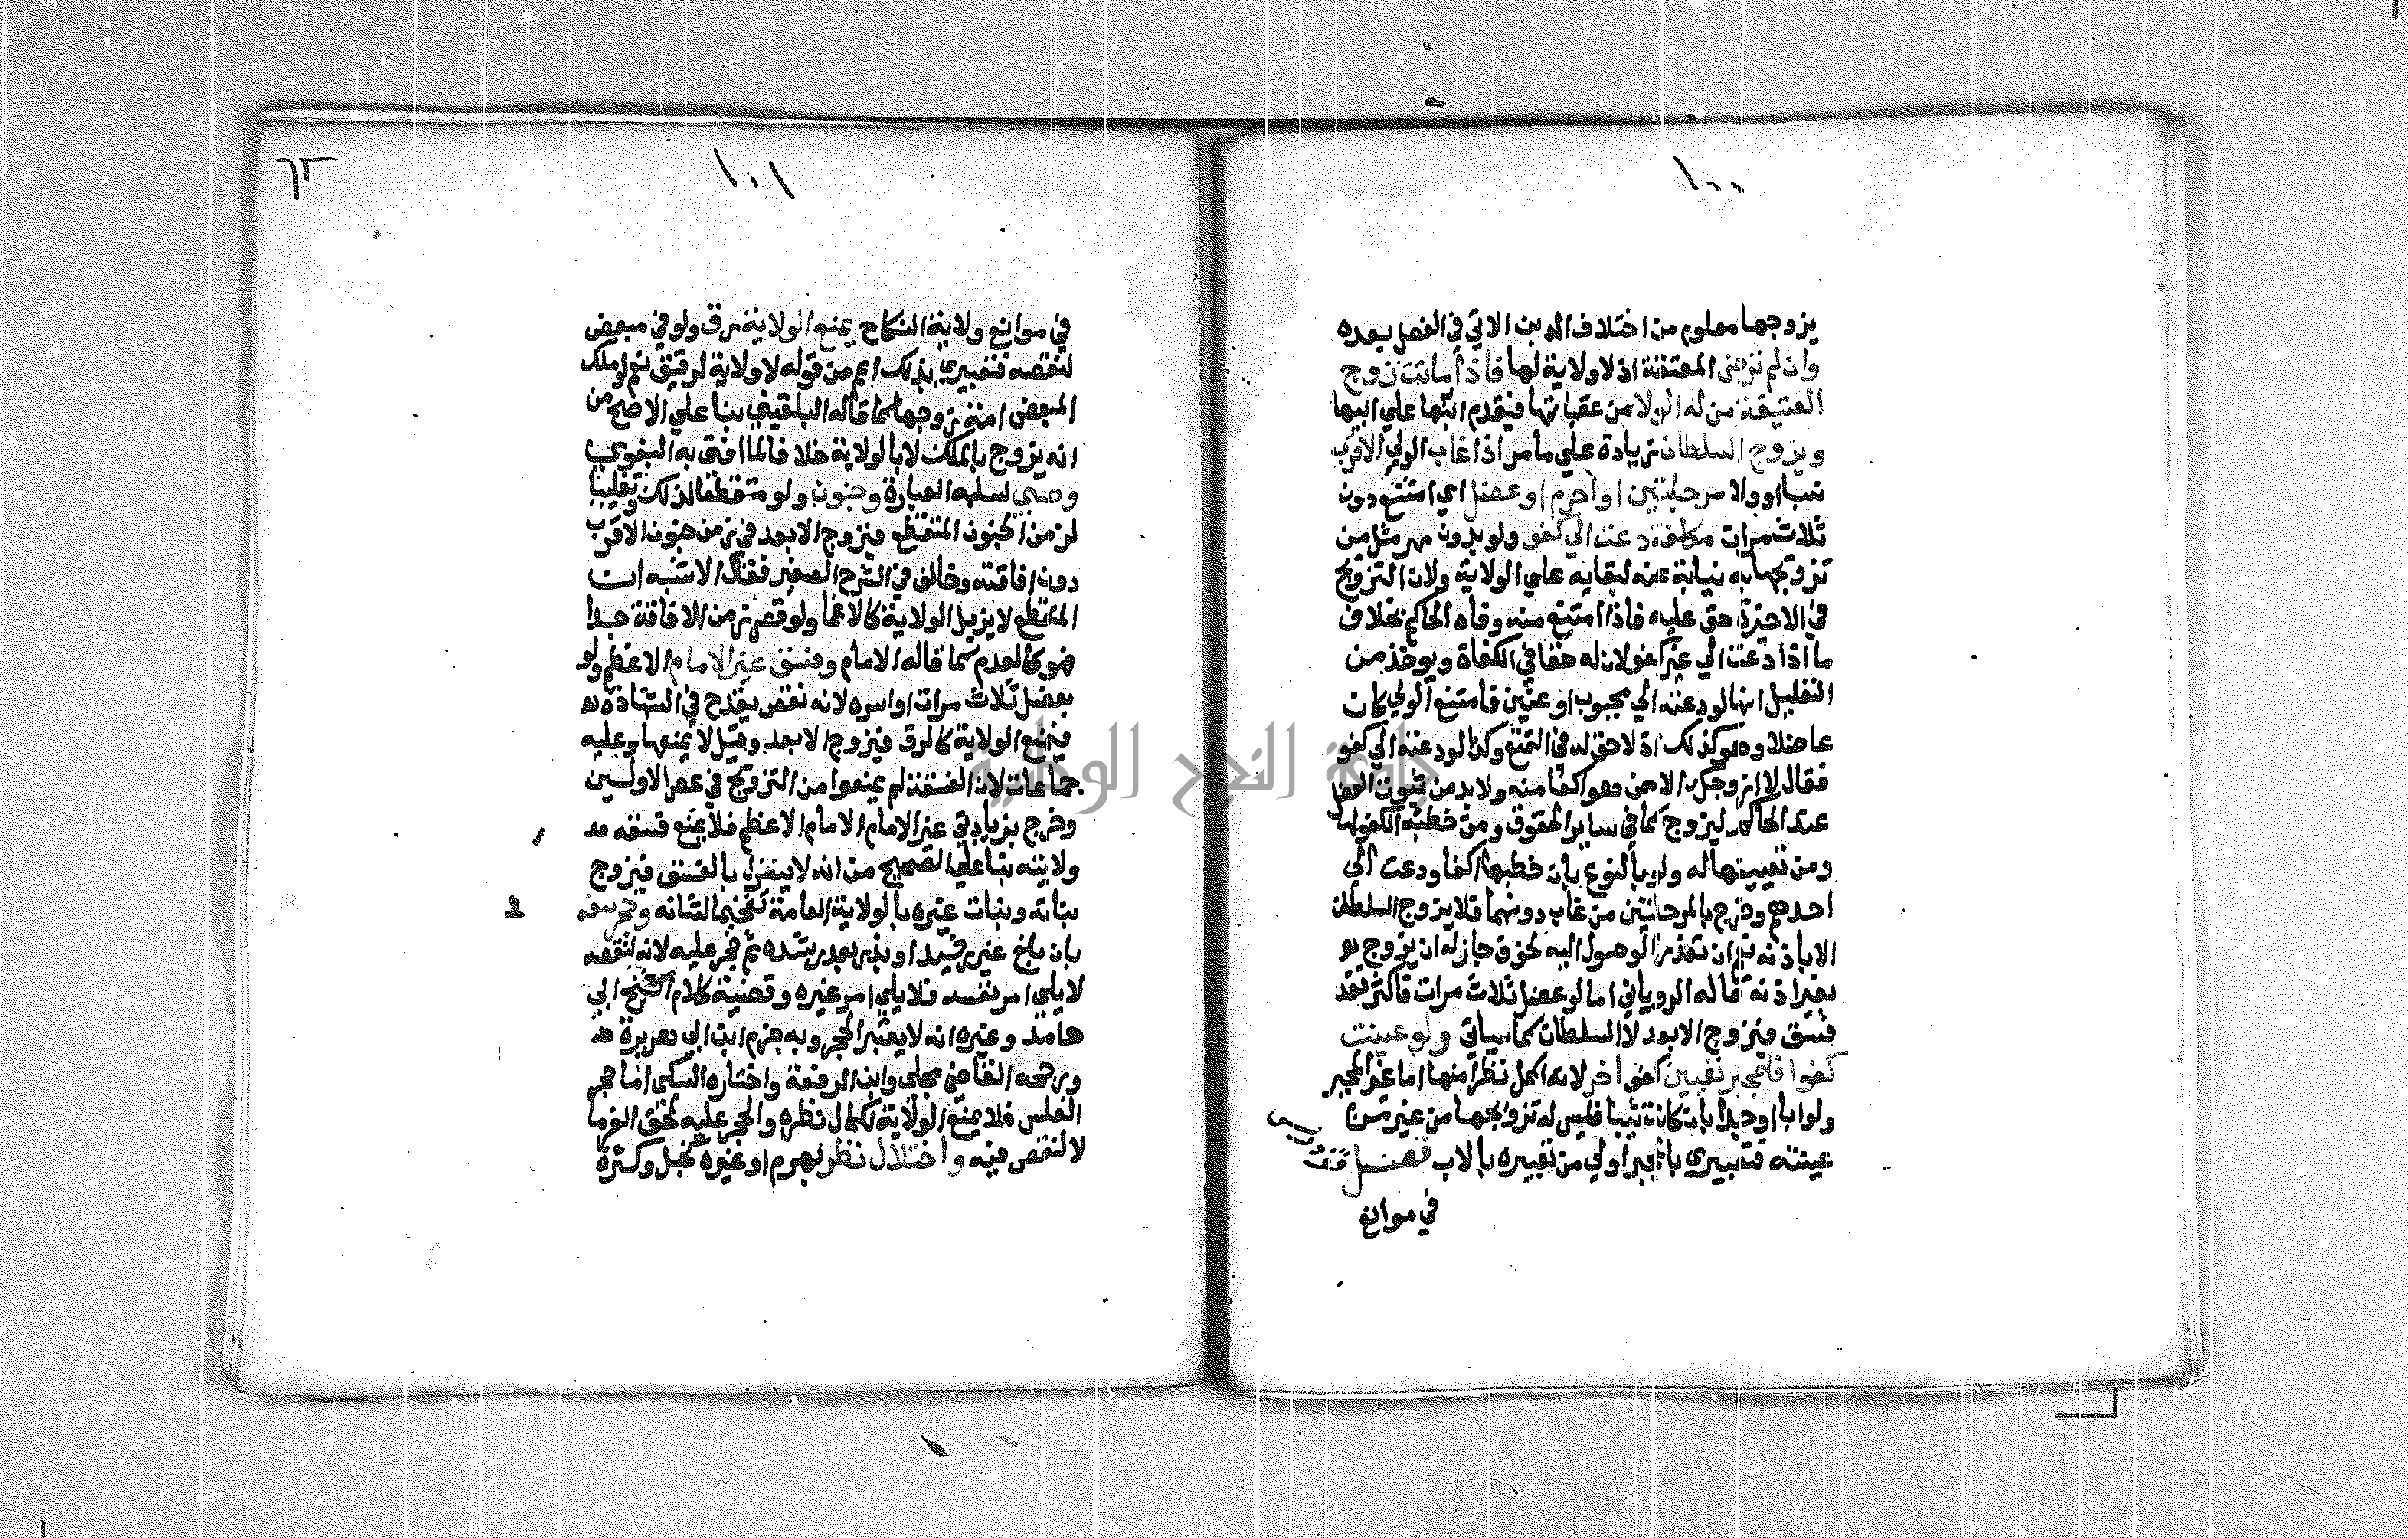 ١٠٠
يزوجها معلوم من اختلاف الدين الاتي في الفصل بعده
وان لم ترض المعتقة اذ لا ولاية لها فاذا ماتت زوج
العتيقة من له الولا من عصباتها فيقدم ابنها على ابيها
ويزوج السلطان زيادة علي ما مر اذا غاب الولي الاقرب
نسبا او ولا مرحلتين او احرم او عضل اي امتنع دون
ثلاث مرات مكلفة دعت الي كفو ولو بدون مهر مثل من
تزويجها به نيابة عنه لبقايه علي الولاية ولان التزويج
في الاخيرة حق عليه فاذا امتنع منه وفاه الحاكم بخلاف
ما اذا دعت الي غير كفو لان له حقا في الكفاة ويوخذ من
التعليل انها لو دعته الي مجبوب او عنين فامتنع الولي كان
عاضلا وهو كذلك اذ لا حق له في التمتع وكذا لو دعته الي كفو
فقال لا ازوجك الا من هو اكفا منه ولا بد من ثبوت العضل
عند الحاكم ليزوج كما في ساير الحقوق ومن خطبة الكفو لها
ومن تعيينها له ولو بالنوع بان خطبها اكفا ودعت الي
احدهم وخرج بالمرحلتين من غاب دونهما فلا يزوج السلطان
الا باذنه نعم ان تعذر الوصول اليه لخوف جاز له ان يزوج
بغير اذنه قاله الروياني اما لو عضل ثلاث مرات فاكثر فقد
فسق فيزوج الابعد لا السلطان كما سياتي ولو عينت
كفوا فللمجبر تعيين كفو اخر لانه اكمل نظرا منها اما غير المجبر
ولو ابا او جدا بان كانت ثيبا فليس له تزويجها من غير من
عينته فتعبيري بالمجبر اولي من تعبيره بالاب فصل
في موانع
١٠١
٦٢
في موانع ولاية النكاح يمنع الولاية رق ولو في مبعض
لنقصه فتعبيري بذلك اعم من قوله لا ولاية لرقيق نعم لو ملك
المبعض امة زوجها كما قاله البلقيني بنا علي الاصح من
انه يزوج بالملك لا بالولاية خلافا لما افتى به البغوي
وصبى لسلبه العبارة وجنون ولو متقطعا لذلك تغليبا
لزمن الجنون المتقطع فيزوج الابعد في زمن جنون الاقرب
دون افاقته وخالف في الشرح الصغير فقال الاشبه ان
المتقطع لا يزيل الولاية كالاغما ولو قصر زمن الافاقة جدا
فهو كالعدم كما قاله الامام وفسق غير الامام الاعظم ولو
بعضل ثلاث مرات او اسره لانه نقص يقدح في الشهادة
فيمنع الولاية كالرق فيزوج الابعد وقيل لا يمنعها وعليه
جماعات لان الفسقة لم يمنعوا من التزويج في عصر الاولين
وخرج بزيادتي غير الامام الامام الاعظم فلا يمنع فسقه
ولايته بنا علي الصحيح من انه لا ينعزل بالفسق فيزوج
بناته وبنات غيره بالولاية العامة تفخيما لشانه وحجر سفه
بان بلغ غير رشيد او بذر بعد رشده ثم حجر عليه لانه لنقصه
لا يلي امر نفسه فلا يلي امر غيره وقضية كلام الشيخ ابي
حامد وغيره انه لا يعتبر الحجر وبه جزم ابن ابي هريرة
ورجحه القاضي مجلى وابن الرفعة واختاره السبكى اما حجر
الفلس فلا يمنع الولاية لكمال نظره والحجر عليه لحق الغرما
لا لنقص فيه واختلال نظر لهرم او غيره كخبل وكثرة